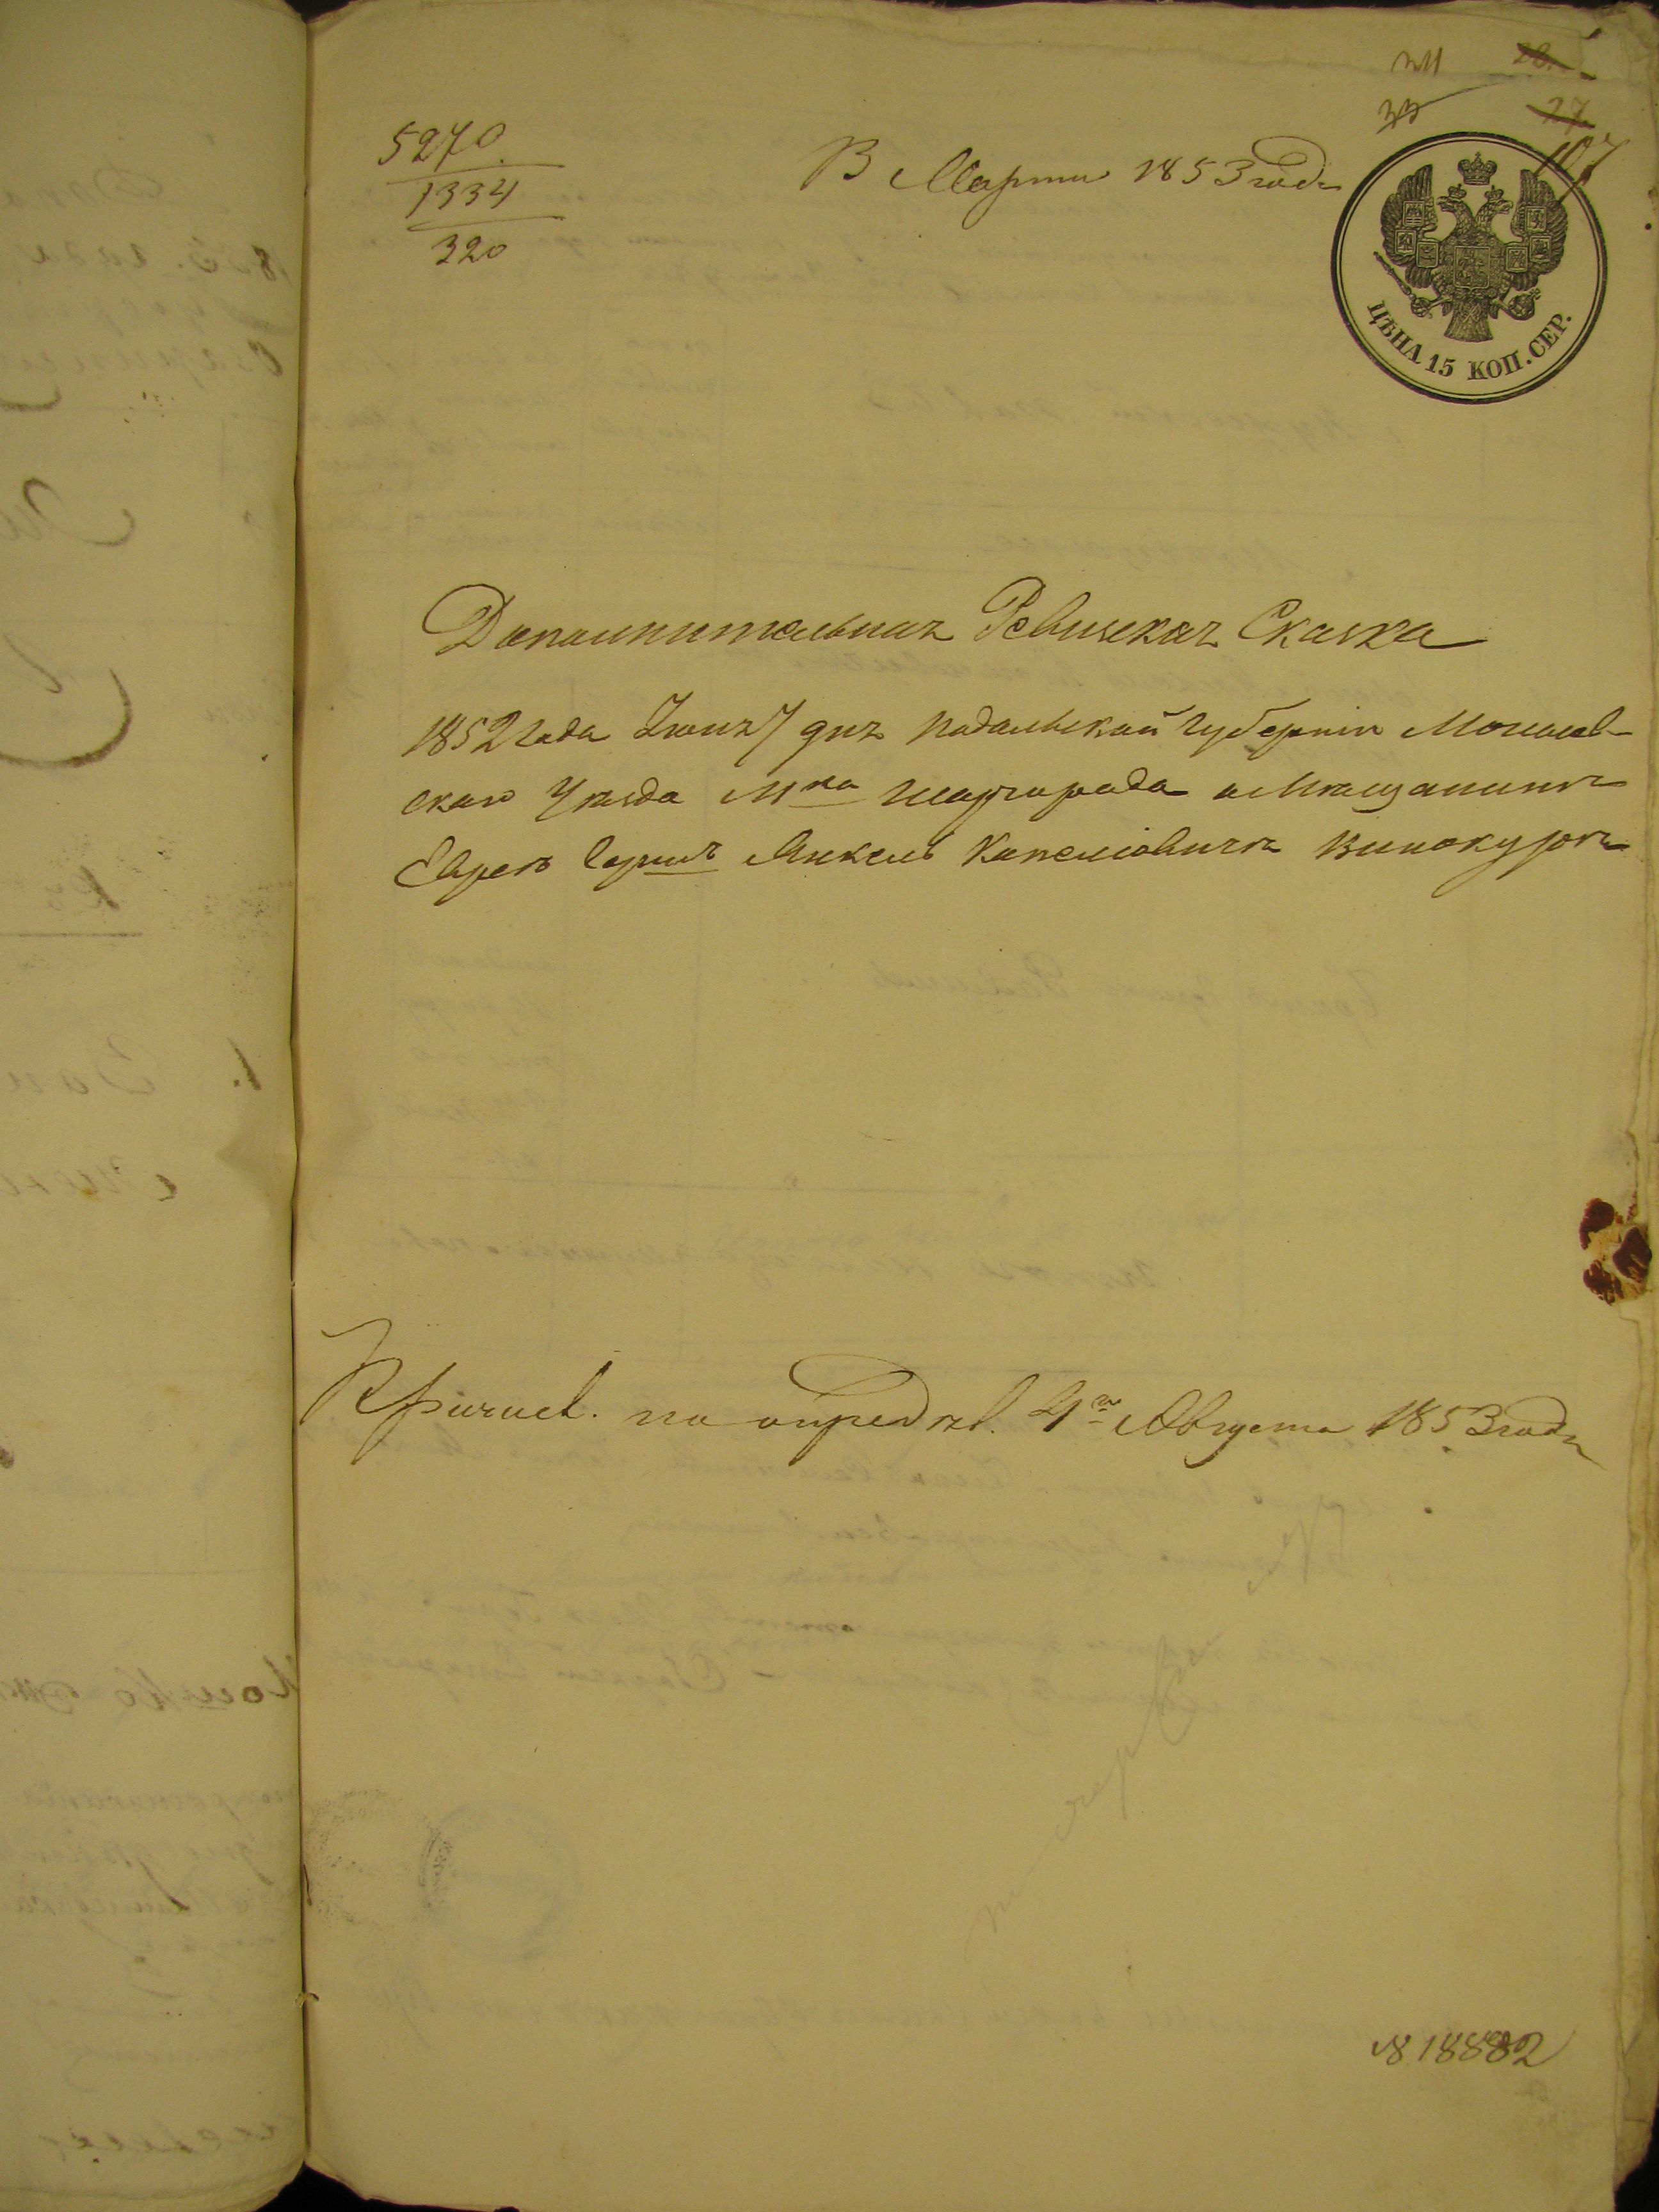 5270
1334
320
В Марти 1853 года
107
ЦѢНА 15 КОП. СЕР.
Дополнительная Ревизская Сказка
1852 года Іюня 7 дня Подольской Губерніи Могилев-
скаго Уѣзда Мка Шаргорода о Мѣщанинѣ
Евреѣ Янкель Капелiовичѣ Винокурѣ
по опредѣл. 4го Августа 1853 года
№ 18882